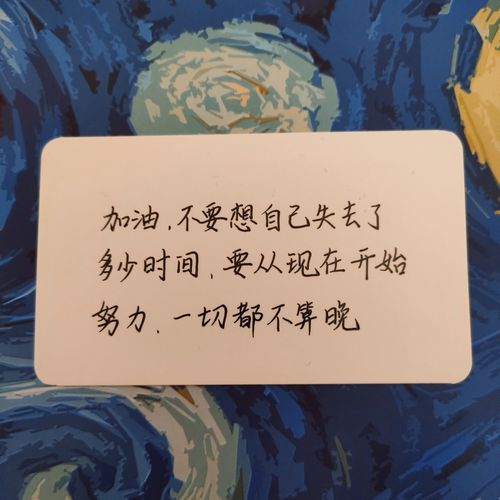 加油,不要想自己失去了
多少时间,要从现在开始
努力.一切都不算晚